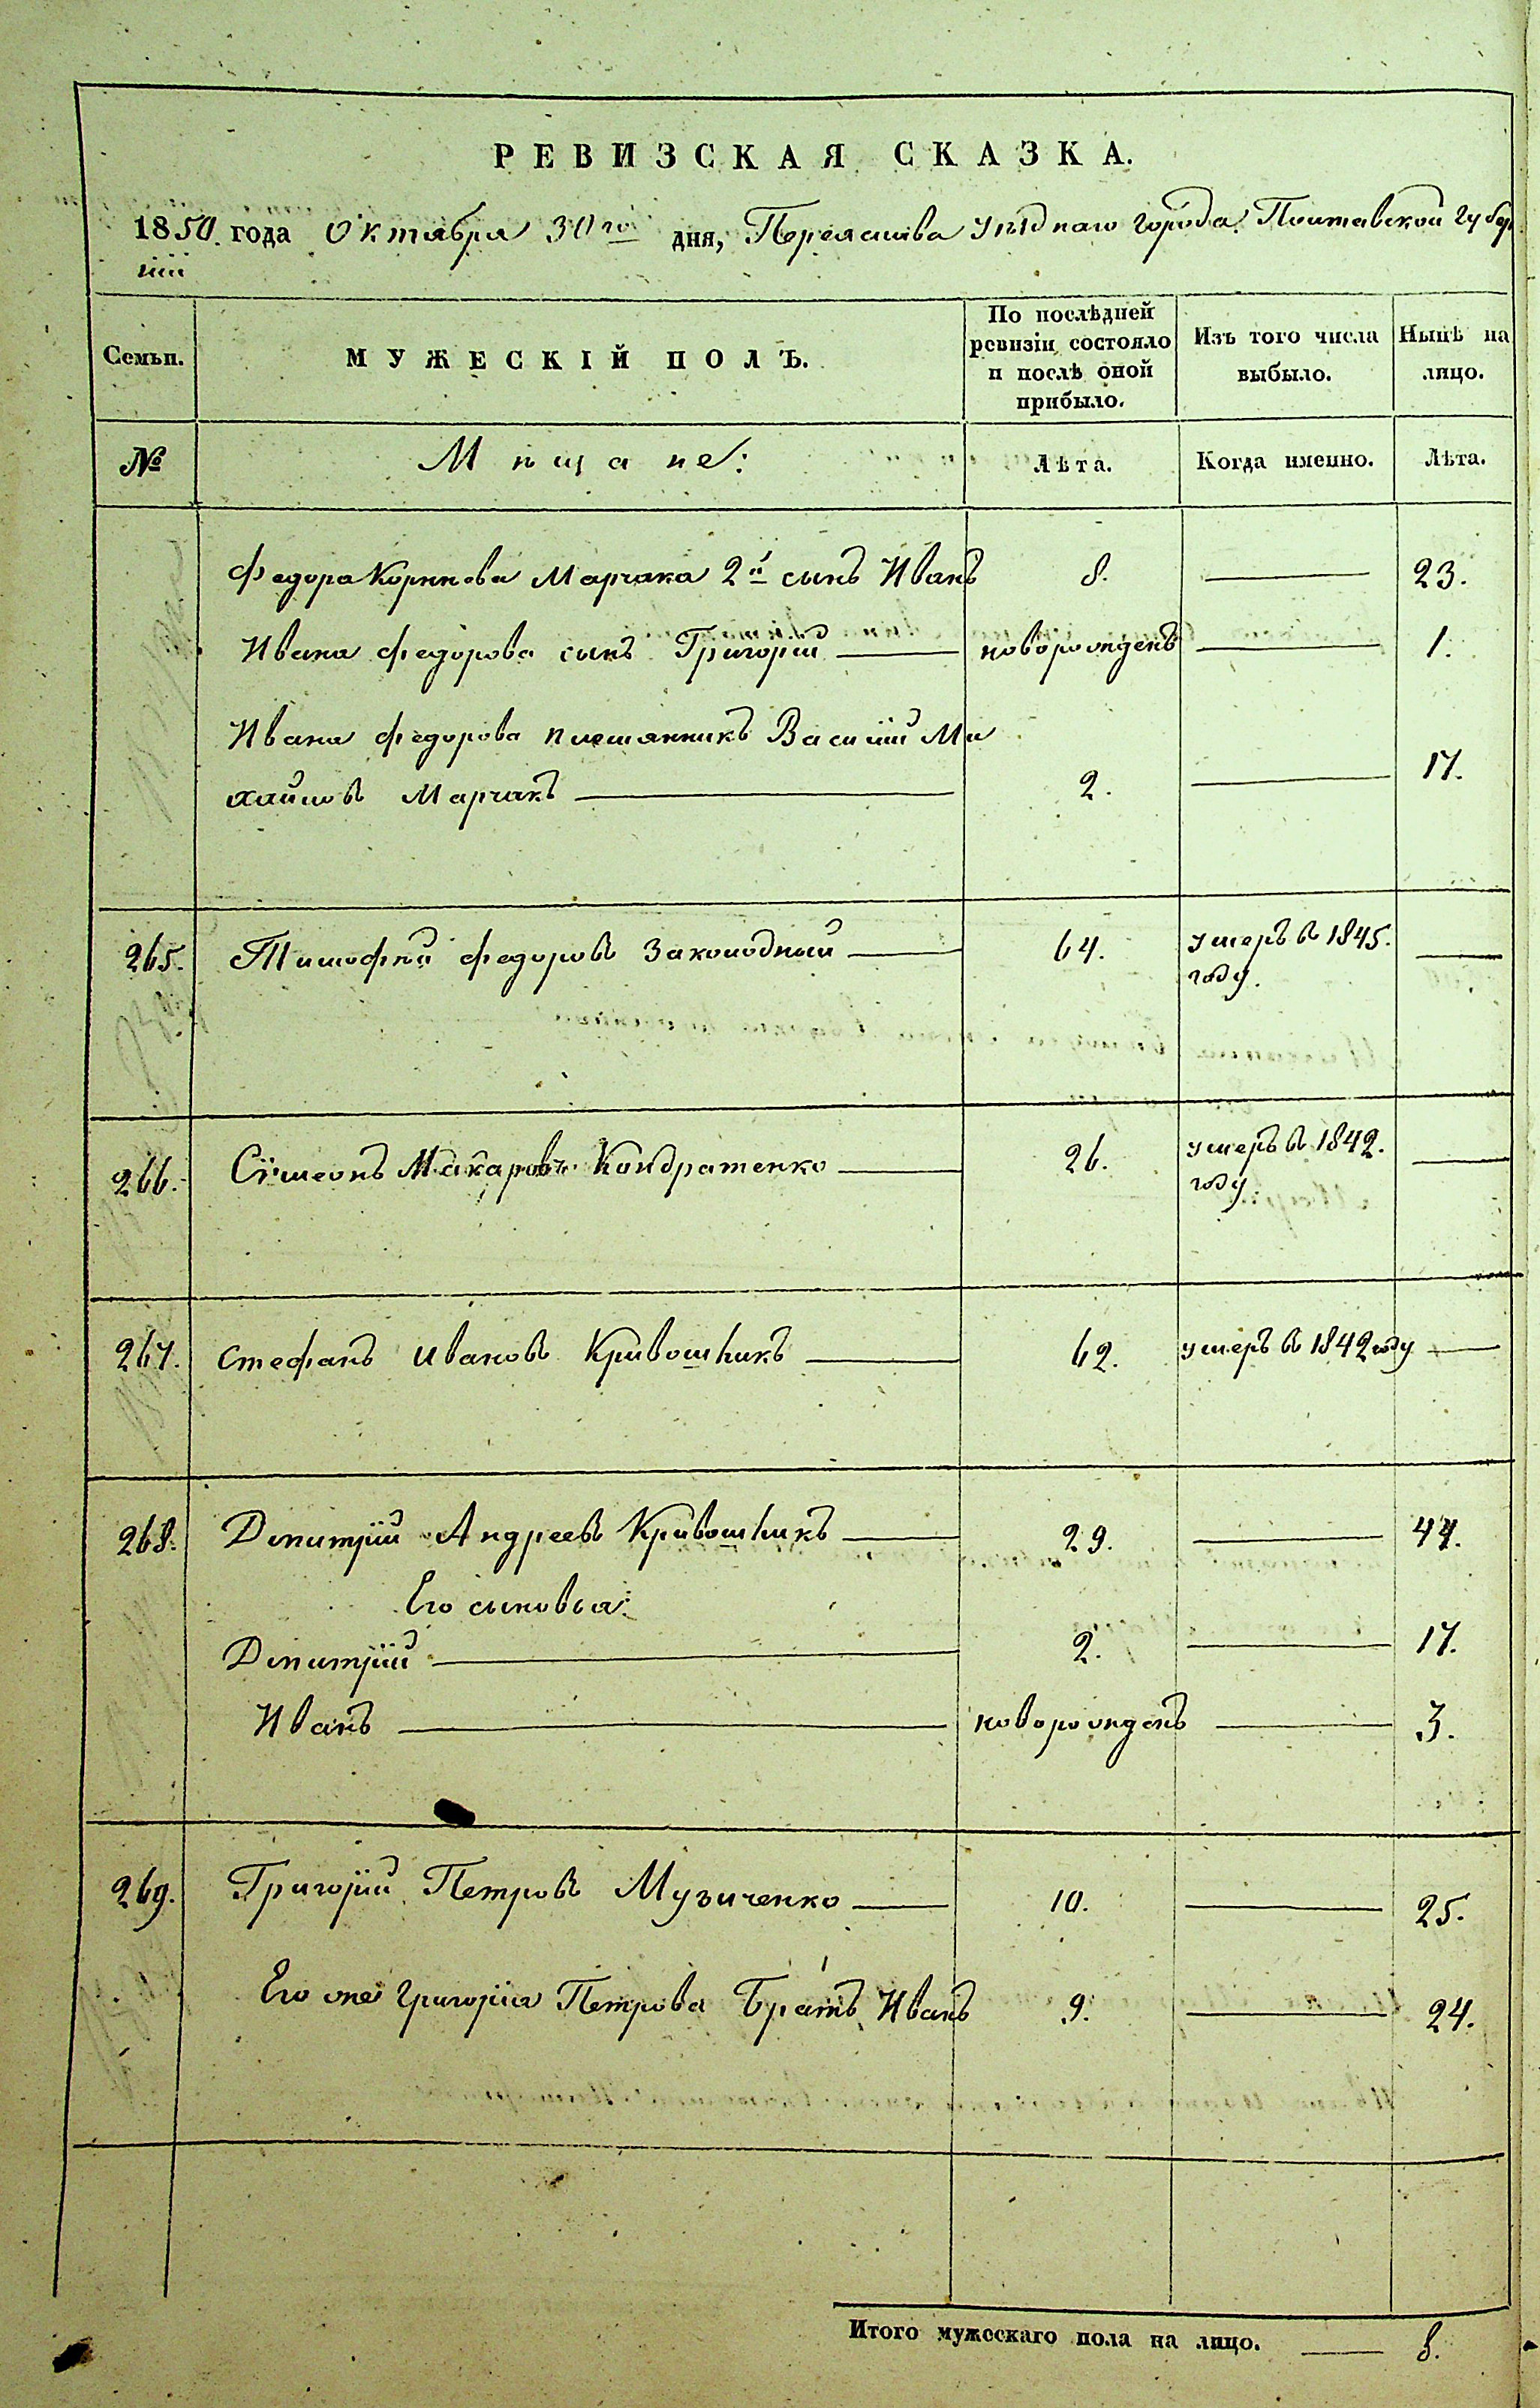 РЕВИЗСКАЯ СКАЗКА.
1850. года Октября 30го дня, Переяслова уѣзднаго города Полтавской Губер
ніи
Семьи. МУЖЕСКІЙ ПОЛЪ. По послѣдней ревизіи состояло и послѣ оной прибыло. Изъ того числа выбыло. Нынѣ на лицо.
№ Мѣщане: Лѣта. Когда именно. Лѣта.
Федора Корнѣева Марчака 2й сынъ Иванъ 8. 23.
Ивана Федорова сынъ Григорій новорожденъ 1.
Ивана Федорова племянникъ Василій Ми
хайловъ Марчакъ 2. 17.
265. Тимофѣй Федоровъ Заколодный 64. умеръ въ 1845.
году.
266. Сімеонъ Макаровъ Кондратенко 26. умеръ въ 1842.
году.
267. Стефанъ Ивановъ Кривошѣикъ 62. умеръ въ 1842 году
268. Дмитрій Андреевъ Кривошѣикъ 29. 44.
Его сыновья:
Дмитрій 2. 17.
Иванъ новорожденъ 3.
269. Григорій Петровъ Музиченко 10. 25.
Его же Григорія Петрова Братъ Иванъ 9. 24.
Итого мужескаго пола на лицо. 8.